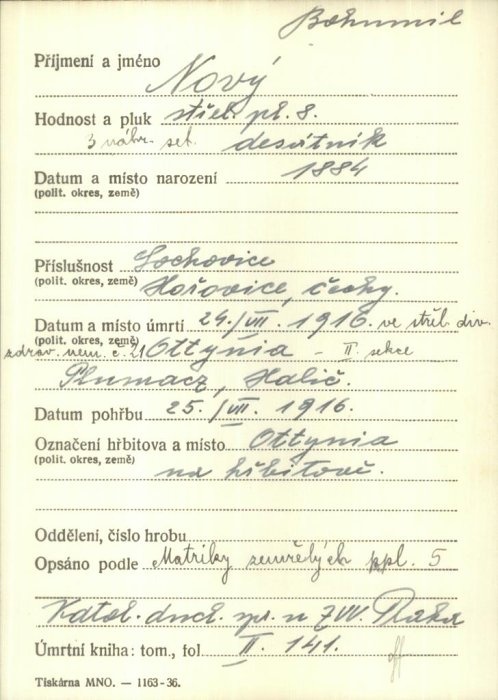 Bohumil
Příjmení a jméno Nový
Hodnost a pluk střel. pl. 8.
3 náhr. set. desátník
Datum a místo narození 1884
(polit. okres, země)
Příslušnost Lochovice
(polit. okres, země) Hořovice, Čechy.
Datum a místo úmrtí 24./VII. 1916. ve střel. div.
(polit. okres, země)
zdrav. nem. č. 21 Ottynia - II. sekce
Tlumacz, Halič.
Datum pohřbu 25./VII. 1916.
Označení hřbitova a místo Ottynia
(polit. okres, země) na hřbitově.
Oddělení, číslo hrobu
Opsáno podle Matriky zemřelých ppl. 5
Katol. duch. spr. u ZVV. Praha
Úmrtní kniha: tom., fol II. 141.
Tiskárna MNO. — 1163-36.